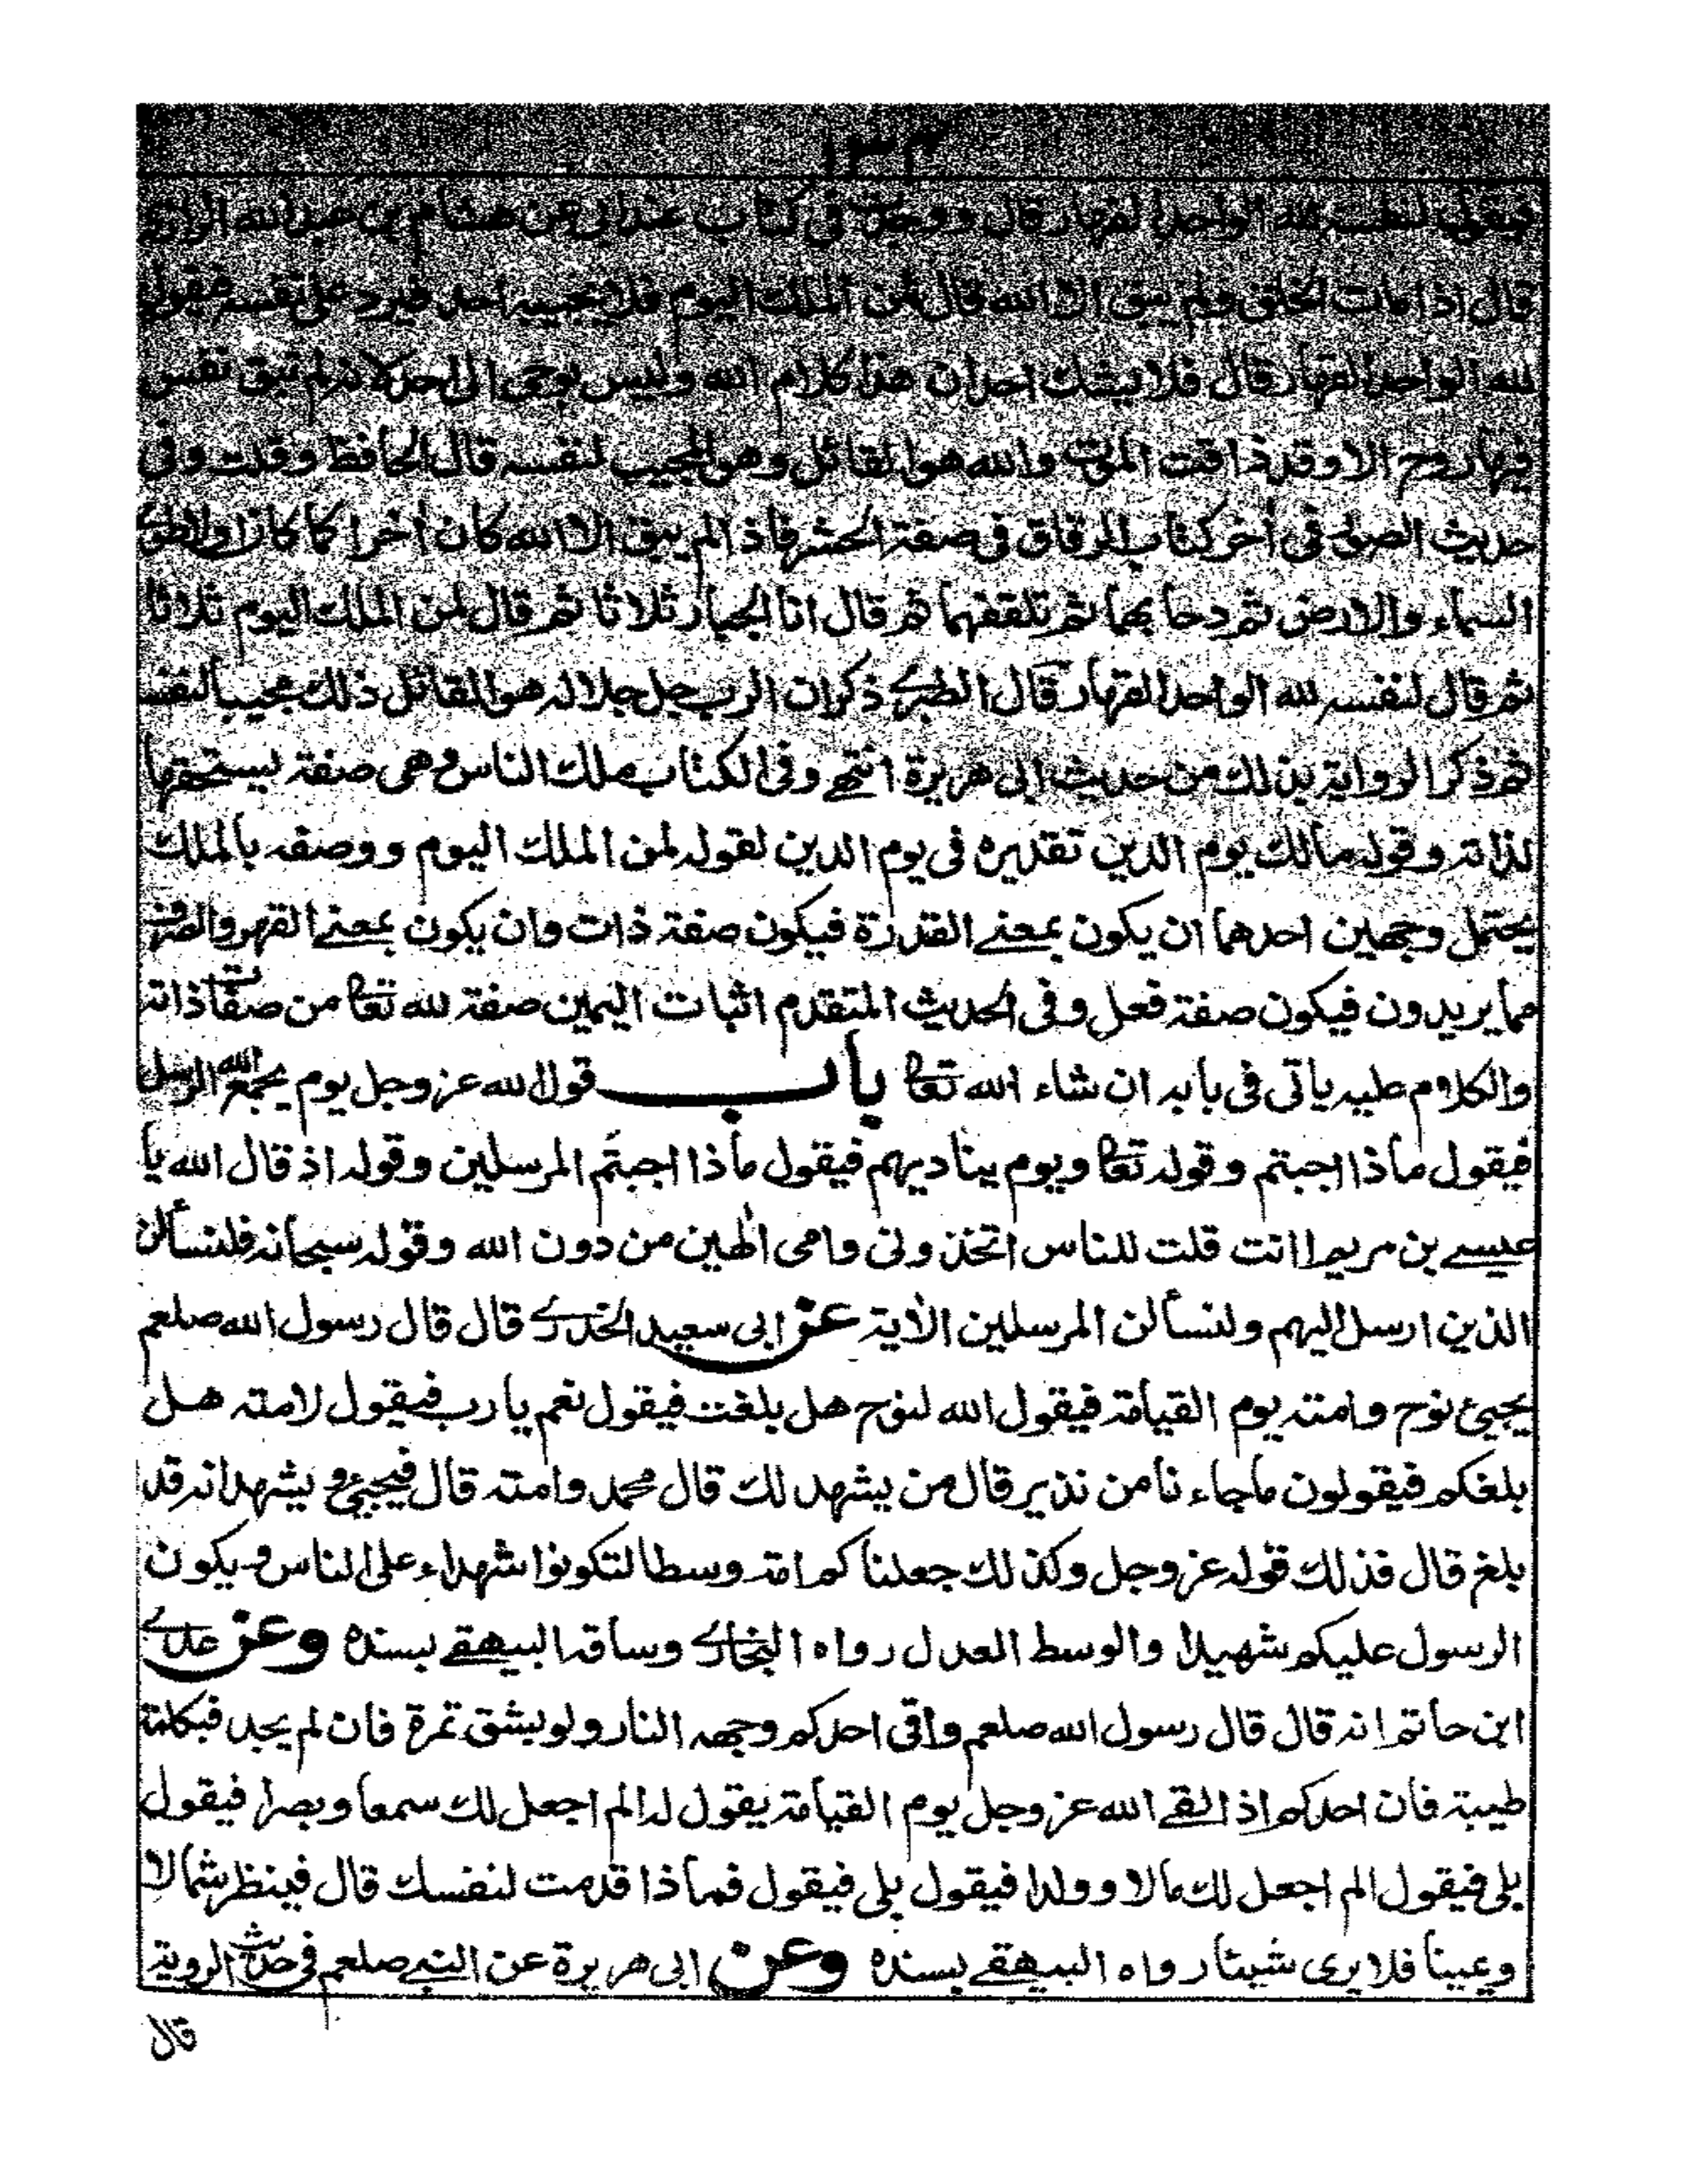 ١٣٤
فيقول لنفسه لله الواحد القهار قال ووجدت فى كتاب عند ابى عن هشام بن عبيد الله الرازى
قال اذا مات الخلق ولم يبق الا الله قال لمن الملك اليوم فلا يجيبه احد فيرد على نفسه فيقول
لله الواحد القهار قال فلا يشك احد ان هذا كلام الله وليس بوحى الى احد لانه لم تبق نفس
فيها روح الا وقد ذاقت الموت والله هو القائل وهو المجيب لنفسه قال الحافظ وقلت وفى
حديث الصور فى أخر كتاب الرقاق فى صفة الحشر فاذا لم يبق الا الله كان أخرا كما كان اولا طوى
السماء والارض ثم دحا بها ثم تلقفهما ثم قال انا الجبار ثلاثا ثم قال لمن الملك اليوم ثلاثا
ثم قال لنفسه لله الواحد القهار قال الطبرى ذكر ان الرب جل جلاله هو القائل ذلك مجيبا لنفسه
ثم ذكر الرواية بذلك من حديث ابى هريرة انتهى وفى الكتاب ملك الناس وهى صفة يستحقها
لذاته وقوله مالك يوم الدين تقديره فى يوم الدين لقوله لمن الملك اليوم ووصفه بالملك
يحتمل وجهين احدهما ان يكون بمعنى القدرة فيكون صفة ذات وان يكون بمعنى القهر والصرف
مما يريدون فيكون صفة فعل وفى الحديث المتقدم اثبات اليمين صفة لله تعا من صفات ذاته
والكلام عليه ياتى فى بابه ان شاء الله تعا باب قول الله عز وجل يوم يجمع الله الرسل
فيقول ماذا اجبتم وقوله تعا ويوم يناديهم فيقول ماذا اجبتم المرسلين وقوله اذ قال الله يا
عيسى بن مريم اانت قلت للناس اتخذونى وامى الٰهين من دون الله وقوله سبحانه فلنسألن
الذين ارسل اليهم ولنسألن المرسلين الأية عن ابى سعيد الخدرى قال قال رسول الله صلعم
يجيئ نوح وامته يوم القيامة فيقول الله لنوح هل بلغت فيقول نعم يا رب فيقول لامته هل
بلغكم فيقولون ما جاءنا من نذير قال من يشهد لك قال محمد وامته قال فيجيئ ويشهد انه قد
بلغ قال فذلك قوله عز وجل وكذلك جعلناكم امة وسطا لتكونوا شهداء على الناس ويكون
الرسول عليكم شهيدا والوسط العدل رواه البخارى وساقه البيهقى بسنده وعن عدى
ابن حاتم انه قال قال رسول الله صلعم واقى احدكم وجهه النار ولو بشق تمرة فان لم يجد فبكلمة
طيبة فان احدكم اذ القى الله عز وجل يوم القيامة يقول له الم اجعل لك سمعا وبصرا فيقول
بلى فيقول الم اجعل لك مالا وولدا فيقول بلى فيقول فماذا قدمت لنفسك قال فينظر شمالا
وعينا فلا يرى شيئا رواه البيهقى بسنده وعن ابى هريرة عن النبى صلعم فى حديث الروية
قال